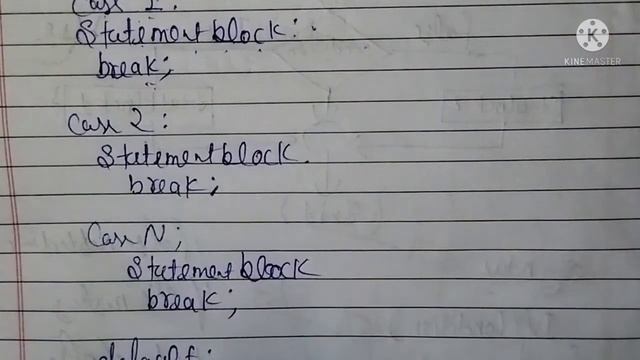 Case 1:
Statement block:
break;
Case 2:
Statement block.
break;
Case N;
Statement block
break;
default:
K
KINEMASTER